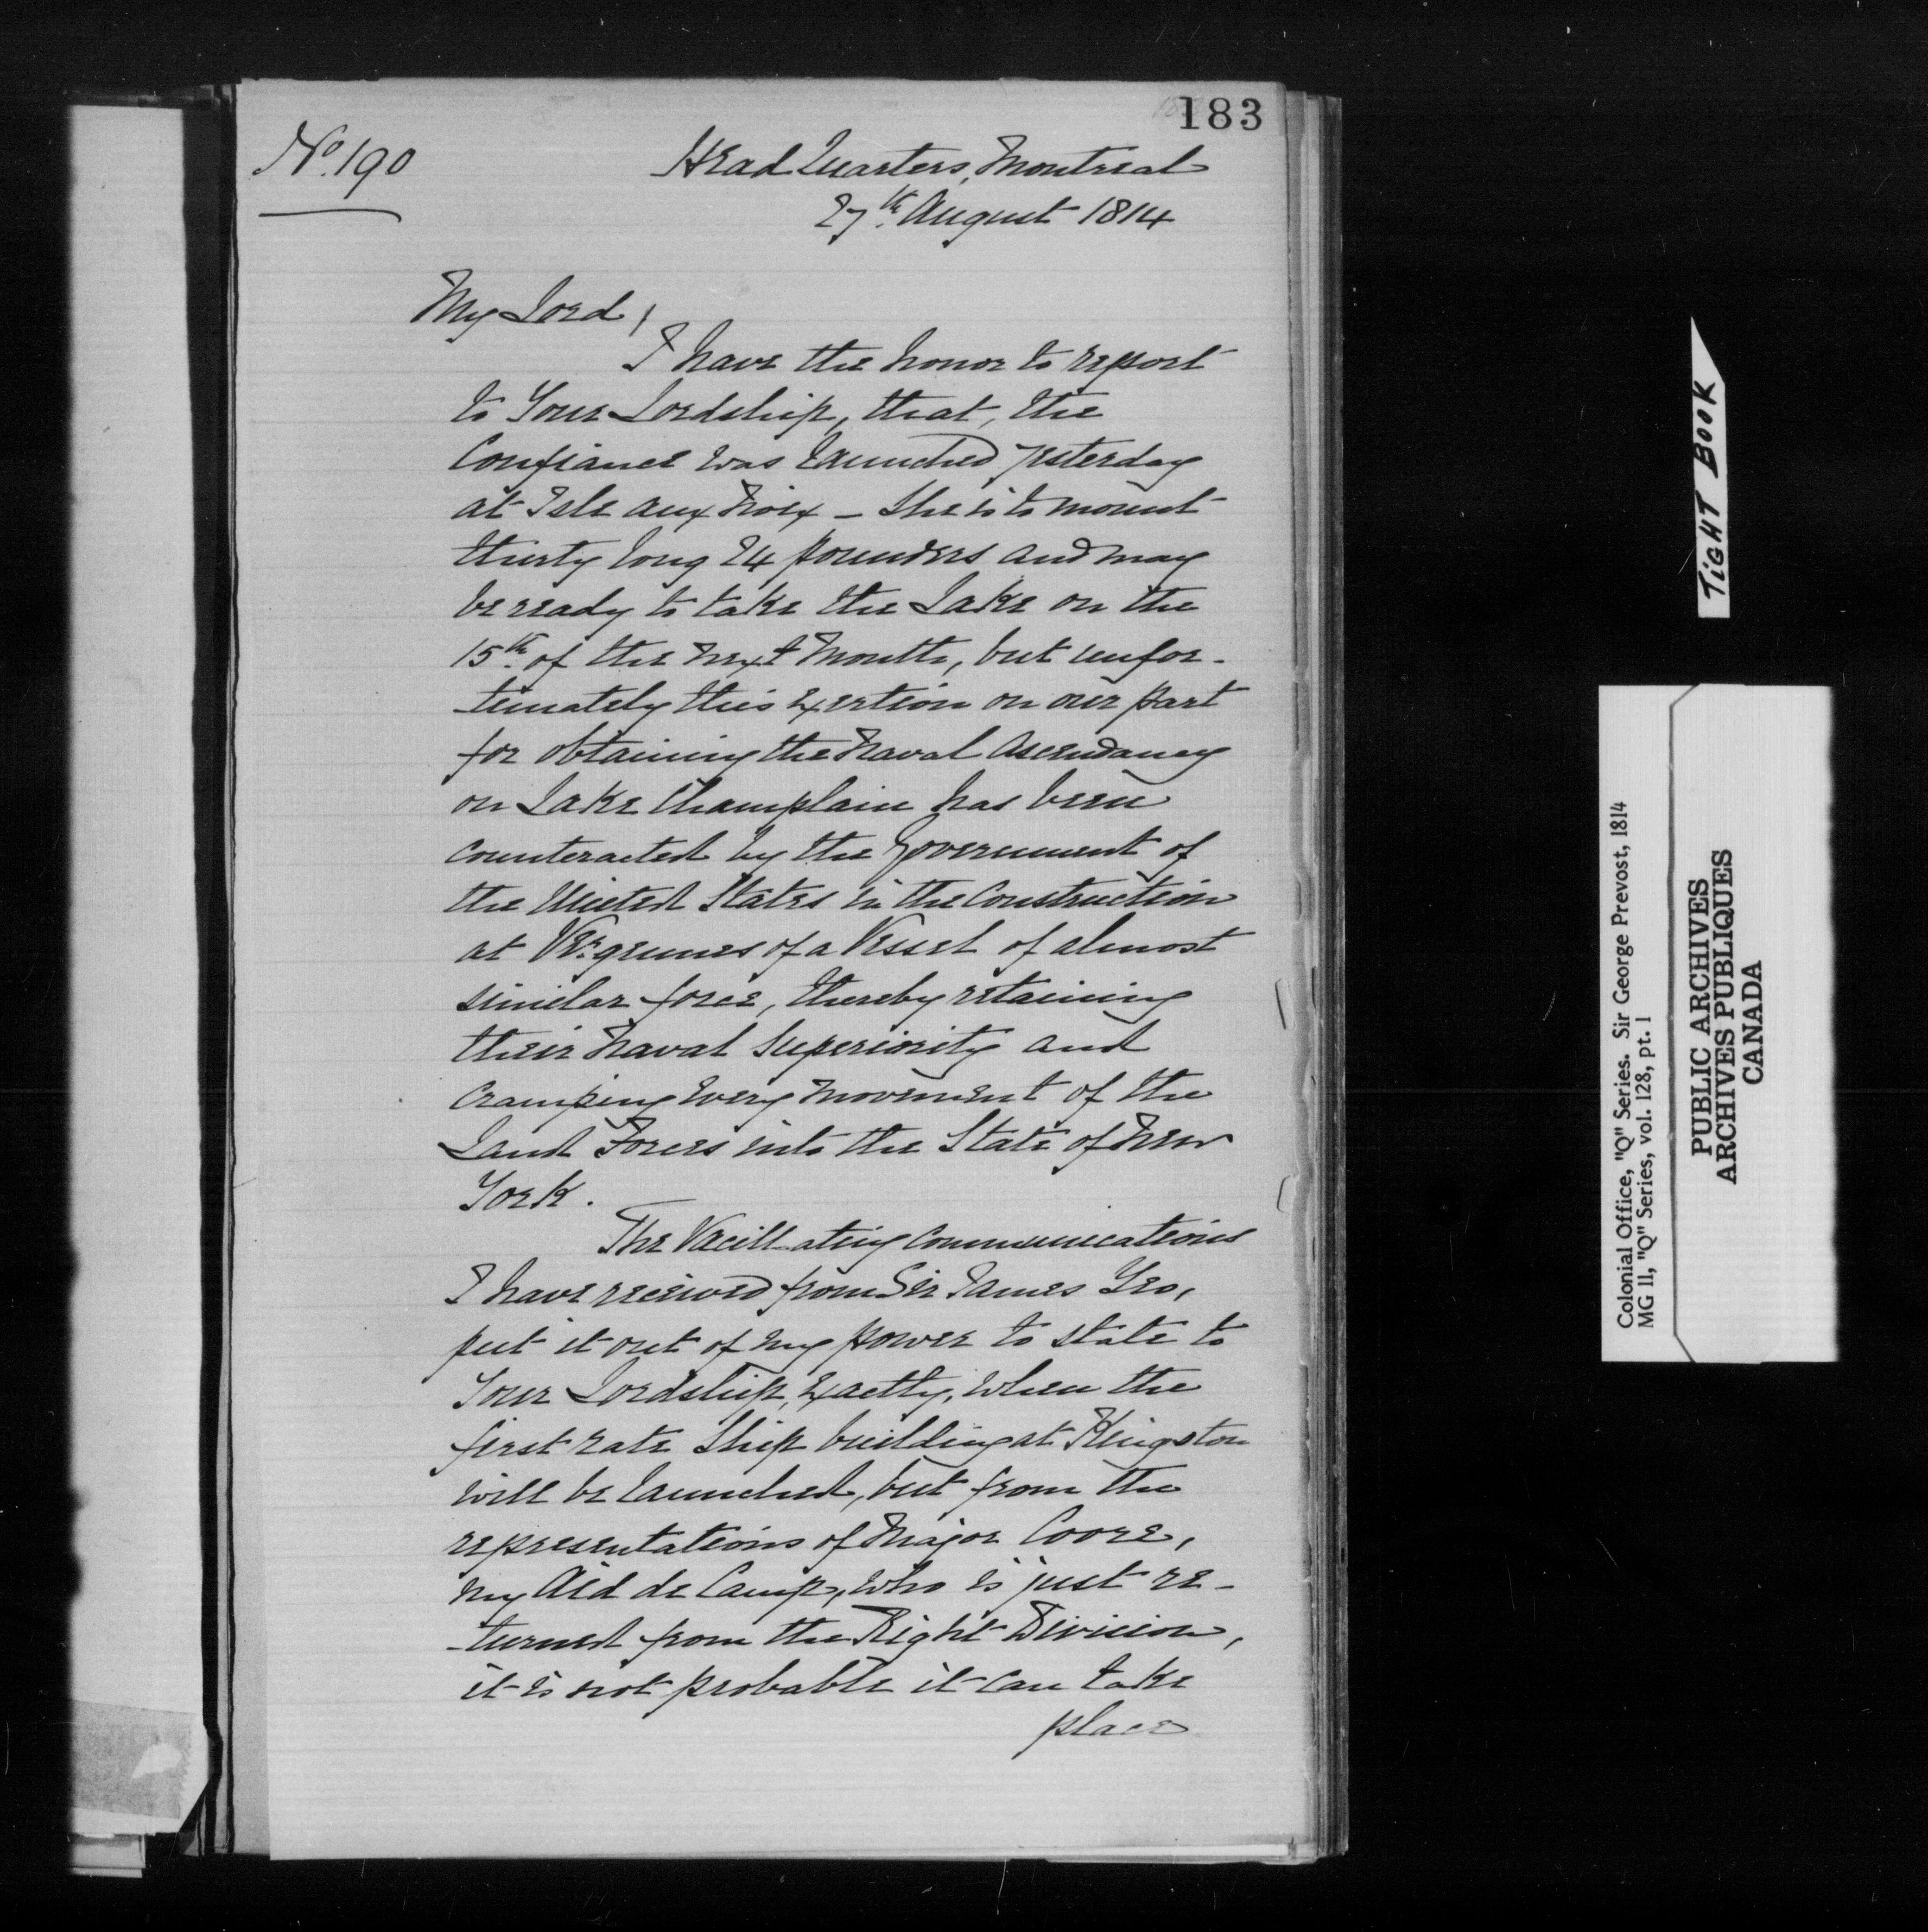 183
No. 190
Head Quarters, Montreal
27th. August 1814
My Lord,
I have the honor to report
to Your Lordship, that, the
Confiance was launched yesterday
at Isle aux Noix – She is to mount
thirty long 24 pounders and may
be ready to take the Lake on the
15th. of the next Month, but unfor-
-tunately this exertion on our part
for obtaining the Naval Ascendancy
on Lake Champlain has been
counteracted by the Government of
the United States in the Construction
at Vergennes of a Vessel of almost
similar force, thereby retaining
their Naval Superiority and
cramping every movement of the
Land Forces into the State of New
York.
The Vacillating Communications
I have received from Sir James Yeo,
put it out of my power to state to
Your Lordship, exactly, when the
first rate Ship building at Kingston
will be launched, but from the
representations of Major Coore,
my Aid de Camp, who is just re-
-turned from the Right Division,
it is not probable it can take
place
TIGHT BOOK
Colonial Office, "Q" Series. Sir George Prevost, 1814
MG 11, "Q" Series, vol. 128, pt. 1
PUBLIC ARCHIVES
ARCHIVES PUBLIQUES
CANADA